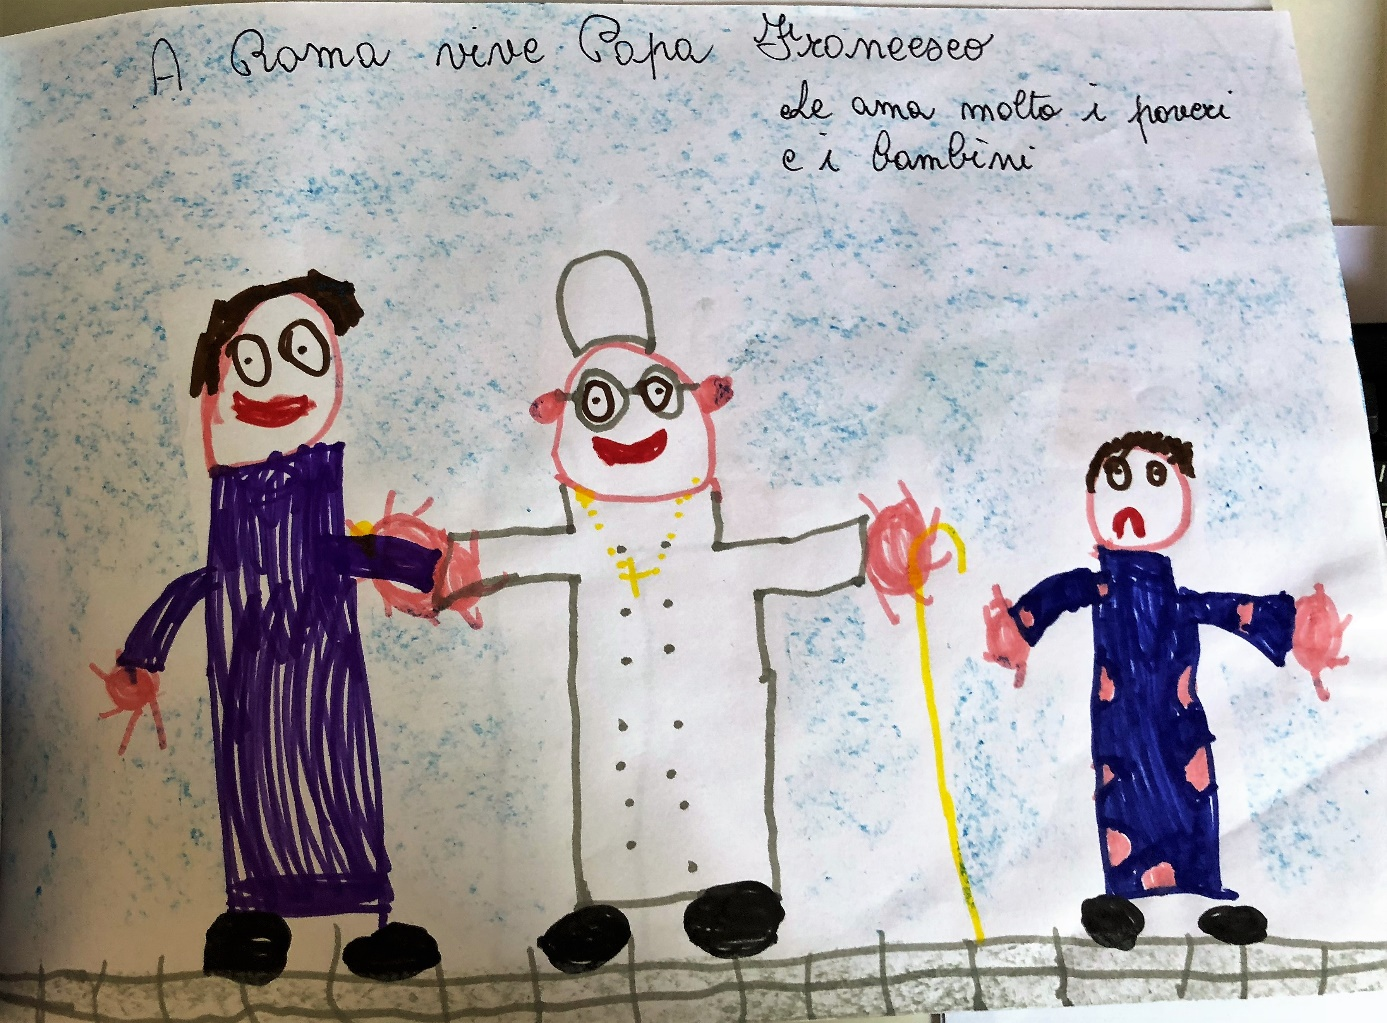 A Roma vive Papa Francesco
che ama molto i poveri
e i bambini